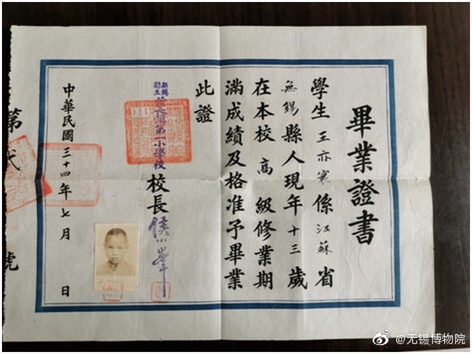 畢業證書
學生王亦寒係江蘇省
無錫縣人現年十三歲
在本校高級修業期
滿成績及格准予畢業
此證
第一小學校
校長
中華民國三十四年七月 日
第 號
@无锡博物院